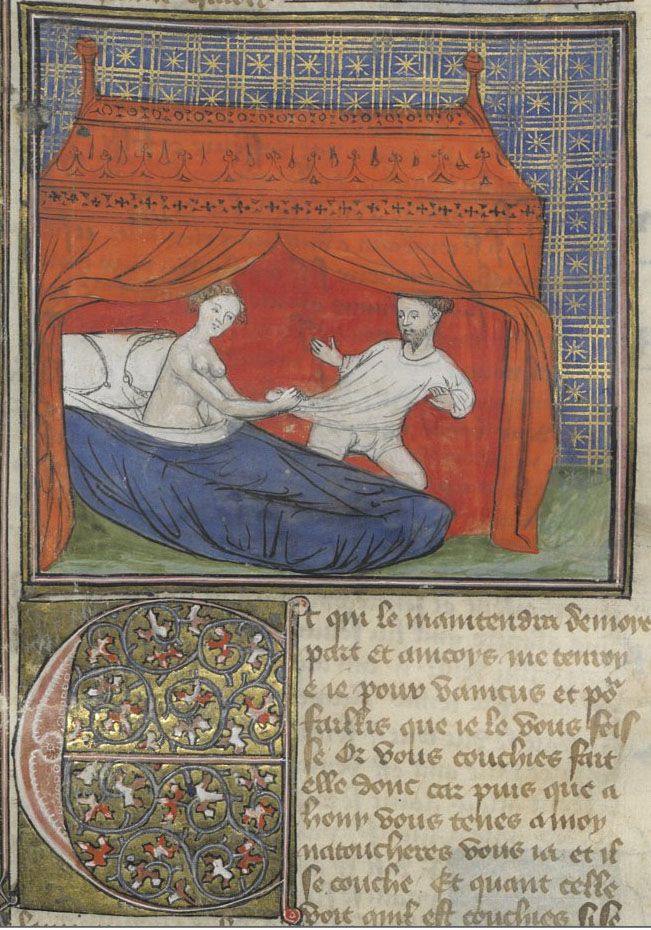 Et qui le maintendra de moye
part Et aincoys me tenroy
e ie pour vaincus et po
faillis que ie le vous feis
se Or vous couchies fait
elle donc car puis que a
hony vous tenes a moy
natoucheres vous ia et il
se couche Et quant celle
voit quil est couchies si se